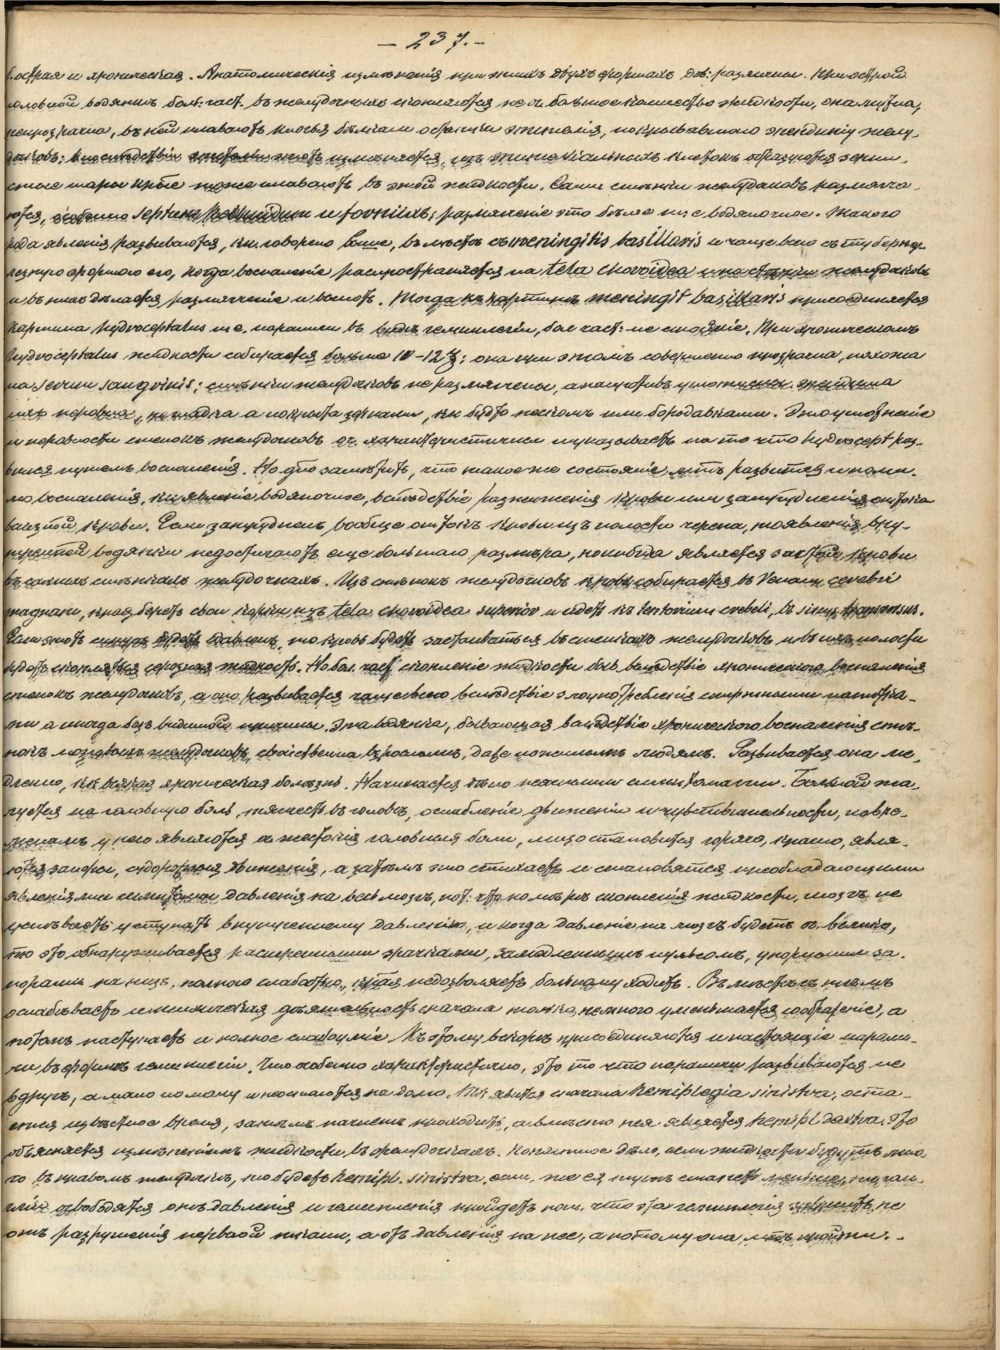 — 237. —
острая и хроническая. Анатомическія измѣненія при этихъ двухъ формахъ до: различны. При острой
головной водянкѣ бол: част. въ желудочкахъ скопляется не бо большое количество жидкости, она мутна,
непрозрачна, въ ней плаваютъ клочья бѣлые эпителія, покрывавшаго эпендиму желу-
дочковъ; впослѣдствіи измѣняется, изъ эпителіальныхъ клѣтокъ образуются зерни-
стые шары также плаваютъ въ этой жидкости. Самыя стѣнки желудочковъ размягча-
ются, особенно septum pellucidum и fornix; размягченіе это бѣлое и водяночное. Такого
рода явленія развиваются, какъ говорено выше, вмѣстѣ съ meningitis basillaris и чаще всего съ туберку-
лезною формою его, когда воспаленіе распространяется на tela choroidea и на стѣнки желудочковъ
и въ нихъ дѣлается размягченіе и выпотъ. Тогда къ картинѣ meningit basillaris присоединяется
картина hydrocephalus т. е. параличи въ видѣ гемиплегіи, бол част: не спасеніе. При хроническомъ
hydrocephalus жидкости собирается больше 10–12 ℥; она при этомъ совершенно прозрачна, похожа
на serum sanguinis; стѣнки желудочковъ не размягчены, а напротивъ уплотнены. эпендима
ихъ неровная, не гладка а покрыта зернами, какъ будто пескомъ или бородавками. Это уплотненіе
и неровности стѣнокъ желудочковъ оч. характеристичны и указываетъ на то что hydroceph раз-
вился путемъ воспаленія. Но до замѣтить, что такое же состояніе мтъ развиться и поми-
мо воспаленія, какъ явленіе водяночное, вслѣдствіе разжиженія крови или затрудненія оттока
венозной крови. Если затрудненъ вообще оттокъ крови изъ полости черепа, то явленія вну-
тренней водянки недостигаютъ еще большаго размѣра, когда является застой крови
въ самыхъ стѣнкахъ желудочковъ. Изъ стѣнокъ желудочковъ кровь собирается въ Venam cerebri
magnam, которая беретъ свои корни изъ tela choroidea superior и идетъ къ tentorium cerebeli, въ sinus transversus.
Если этотъ синусъ будетъ сдавленъ, то кровь будетъ застаиваться въ стѣнкахъ желудочковъ и въ ихъ полости
будетъ скопляться серозная жидкость. Но бол. част скопленіе жидкости быв. вслѣдствіе хроническаго воспаленія
стѣнокъ желудочковъ, а оно развивается чаще всего вслѣдствіе злоупотребленія спиртными напитка-
ми а иногда безъ видимой причины. Эта водянка, бывающая вслѣдствіе хроническаго воспаленія стѣ-
нокъ мозговыхъ желудочковъ, свойственна взрослымъ, даже пожилымъ людямъ. Развивается она ме-
дленно, какъ всякая хроническая болѣзнь. Начинается тѣмо неясными симптомами. Больной жа-
луется на головную боль, тяжесть въ головѣ, ослабленіе движенія и чувствительности, по вре-
менамъ у него являются жестокія головныя боли, лицо становится горячо, красно, явля-
ются запоры, судорожныя движенія, а затѣмъ это стихаетъ и становятся преобладающими
явленіями симптомы давленія на весь мозгъ, пот: что по мѣрѣ скопленія жидкости, мозгъ не
успѣваетъ уступать внутреннему давленію, и когда давленіе на мозгъ будетъ оч. велико,
то это обнаруживается расширенными зрачками, замедленнымъ пульсомъ, упорными за-
порами на низъ, полною слабостью, которая недозволяетъ больному ходить. Вмѣстѣ съ тѣмъ
ослабѣваетъ и психическая дѣятельность сначала только немного уменьшается соображеніе, а
потомъ наступаетъ и полное слабоуміе. Къ этому вскорѣ присоединяются и настоящіе парали-
чи въ формѣ гемиплегіи. Что особенно характеристично, это то что параличи развиваются не
вдругъ, а мало по малу и неостаются на долго. Такъ явится сначала hemiplegia sinistra, оста-
ется извѣстное время, затѣмъ начнетъ проходить, а вмѣсто нея является hemipl dextra. Это
объясняется измѣненіемъ жидкости въ желудочкахъ. Понятное дѣло, если жидкости будутъ мно-
го въ правомъ желудочкѣ, то будетъ hemipl. sinistra, если же ея тутъ станетъ меньше,
освободится отъ давленія и гемиплегія пройдетъ пот. что эта гемиплегія зависитъ не
отъ разрушенія нервной ткани, а отъ давленія на нее, а потому она мтъ пройти. —